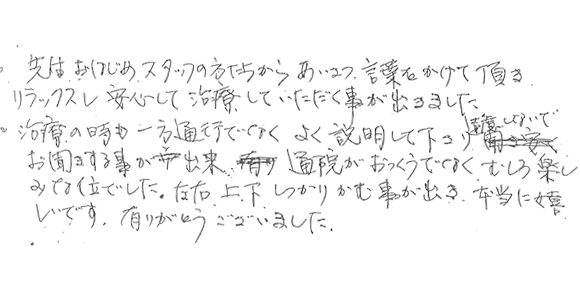 。先生はおはじめ、スタッフの方たちからあいさつ、言葉をかけて頂き
リラックスし安心して治療していただく事が出きました
。治療の時も一方通行でなく よく説明して下さり 遠慮しないで
お聞きする事が出来、通院がおっくうでなく、むしろ楽し
みな位でした。左右、上、下 しっかりかむ事が出き、本当に嬉
しいです。有りがとうございました。